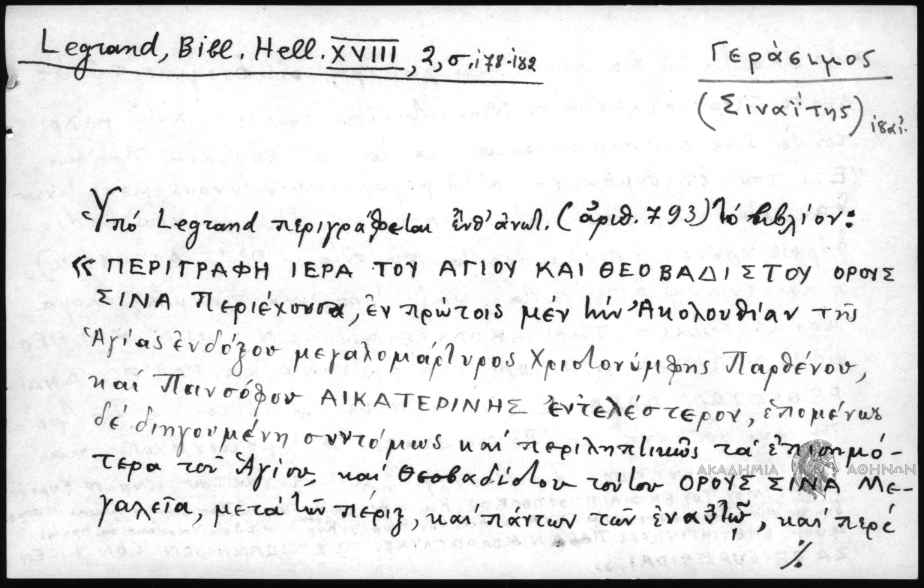 Legrand, Bibl. Hell. XVIII, 2, σ. 178-182
Γεράσιμος
(Σιναΐτης) 18 αἰ.
Ὑπό Legrand περιγράφεται ἐνθ' ἀνωτ. (ἀριθ. 793) τό βιβλίον:
« ΠΕΡΙΓΡΑΦΗ ΙΕΡΑ ΤΟΥ ΑΓΙΟΥ ΚΑΙ ΘΕΟΒΑΔΙΣΤΟΥ ΟΡΟΥΣ
ΣΙΝΑ Περιέχουσα, ἐν πρώτοις μέν τήν Ἀκολουθίαν τῆς
Ἁγίας ἐνδόξου μεγαλομάρτυρος Χριστονύμφης Παρθένου,
καί Πανσόφου ΑΙΚΑΤΕΡΙΝΗΣ ἐντελέστερον, ἑπομένως
δέ διηγουμένη συντόμως καί περιληπτικῶς τά ἐπισημό-
τερα τοῦ Ἁγίου, καί Θεοβαδίστου τούτου ΟΡΟΥΣ ΣΙΝΑ Με-
γαλεῖα, μετά τῶν πέριξ, καί πάντων τῶν ἐν αὐτῷ, καί περί
./.
ΑΚΑΔΗΜΙΑ ΑΘΗΝΩΝ